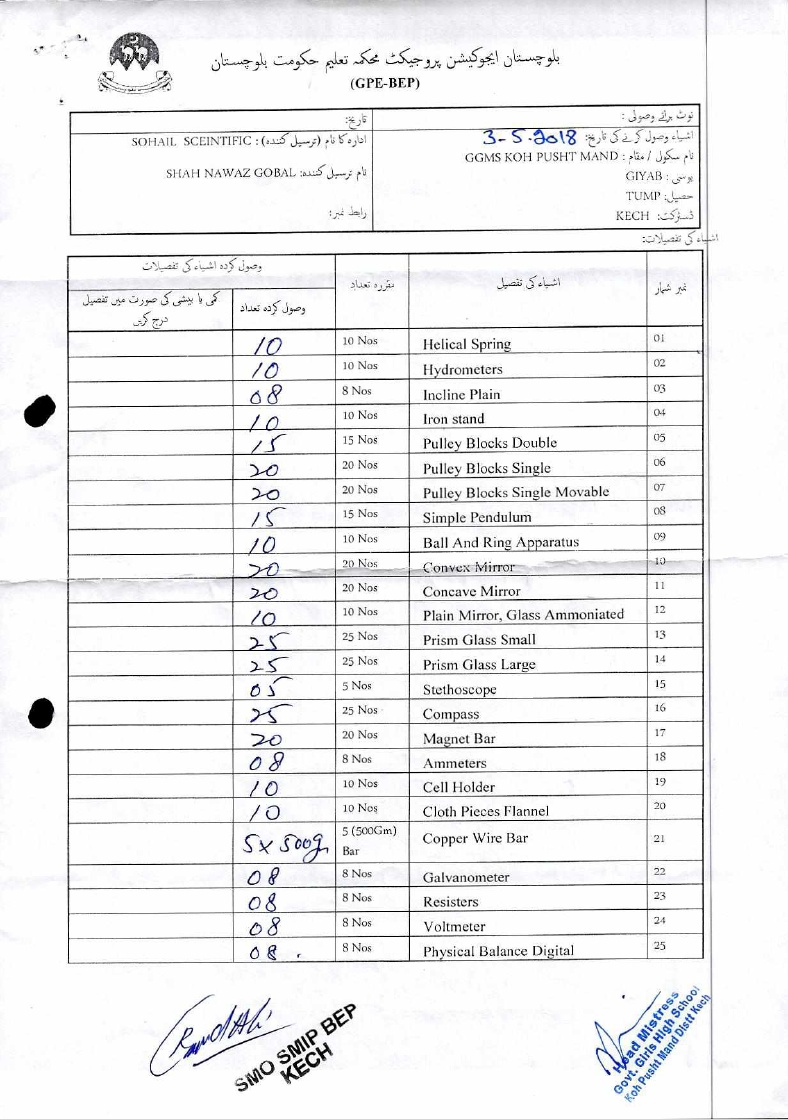 بلوچستان ایجوکیشن پروجیکٹ محکمہ تعلیم حکومت بلوچستان
(GPE-BEP)
نوٹ برائے وصولی :
تاریخ:
اشیاء وصول کرنے کی تاریخ: 3-5-2018
ادارہ کا نام (ترسیل کنندہ) : SOHAIL SCEINTIFIC
نام سکول / مقام : GGMS KOH PUSHT MAND
نام ترسیل کنندہ: SHAH NAWAZ GOBAL
یوسی : GIYAB
تحصیل: TUMP
ڈسٹرکٹ: KECH
رابطہ نمبر:
اشیاء کی تفصیلات:
نمبر شمار اشیاء کی تفصیل مقررہ تعداد وصول کردہ اشیاء کی تفصیلات
وصول کردہ تعداد کمی یا بیشی کی صورت میں تفصیل درج کریں
10 10 Nos Helical Spring 01
10 10 Nos Hydrometers 02
08 8 Nos Incline Plain 03
10 10 Nos Iron stand 04
15 15 Nos Pulley Blocks Double 05
20 20 Nos Pulley Blocks Single 06
20 20 Nos Pulley Blocks Single Movable 07
15 15 Nos Simple Pendulum 08
10 10 Nos Ball And Ring Apparatus 09
20 20 Nos Convex Mirror 10
20 20 Nos Concave Mirror 11
10 10 Nos Plain Mirror, Glass Ammoniated 12
25 25 Nos Prism Glass Small 13
25 25 Nos Prism Glass Large 14
05 5 Nos Stethoscope 15
25 25 Nos Compass 16
20 20 Nos Magnet Bar 17
08 8 Nos Ammeters 18
10 10 Nos Cell Holder 19
10 10 Nos Cloth Pieces Flannel 20
5 x 500g 5 (500Gm) Bar Copper Wire Bar 21
08 8 Nos Galvanometer 22
08 8 Nos Resisters 23
08 8 Nos Voltmeter 24
08 8 Nos Physical Balance Digital 25
SMO SMIP BEP
KECH
Head Mistress
Govt. Girls High School
Koh Pusht Mand Distt Kech